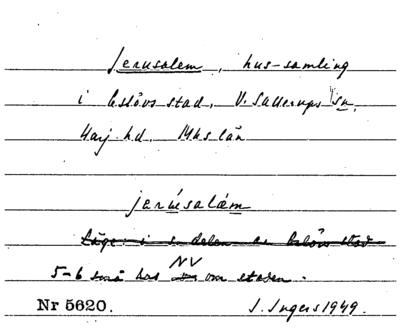 Jerusalem, hus-samling
i Eslövs stad, V. Sallerups sn,
Harj. hd. Mhs län
jerúsalém
Läge: i s. delen av Eslövs stad
NV
5-6 små hus om staden.
Nr 5620. J. Ingers 1949.